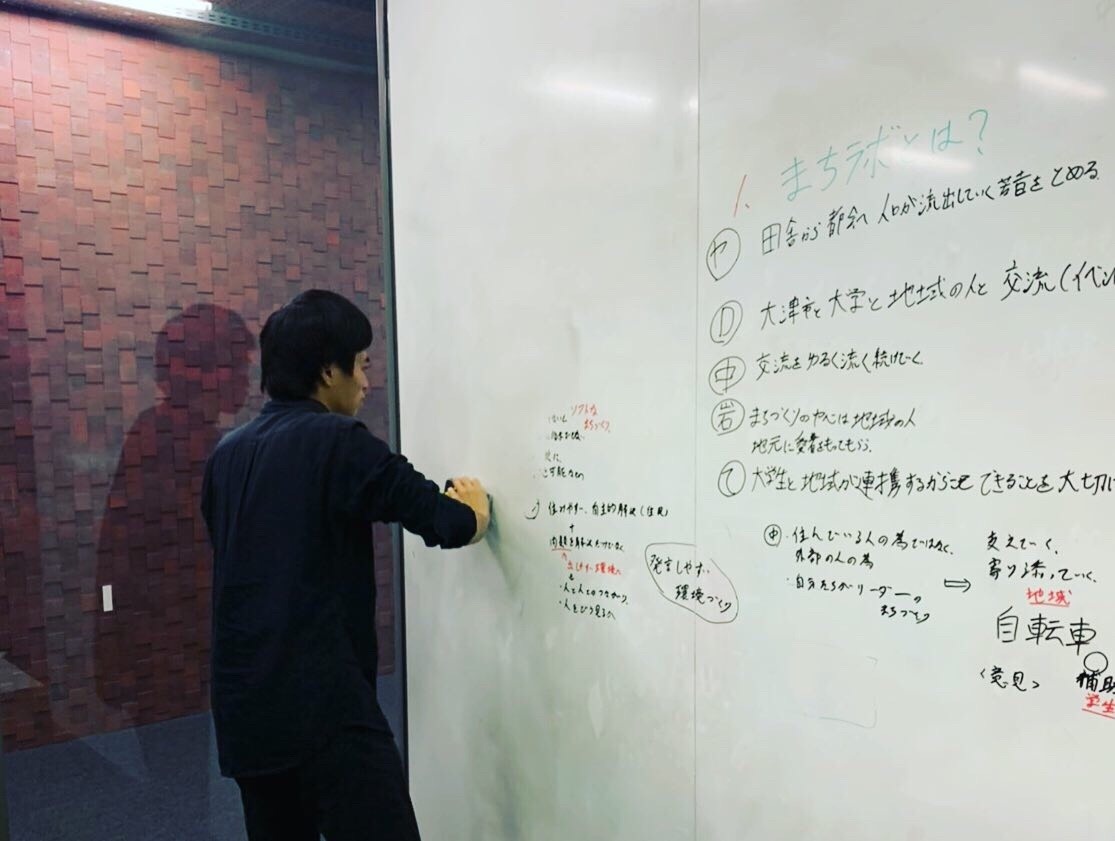 1. まちラボとは？
ヤ 田舎から都会へ人口が流出していく若者をとめる
D 大津市と大学と地域の人と交流(イベン
中 交流をゆるく流く続けていく
岩 まちづくりの中心は地域の人
地元に愛着をもってもらう。
て 大学生と地域が連携するからこそできることを大切に
中・住んでいる人の為ではなく、
外部の人の為
・自分たちがリーダーの
まちづくり
⇒
支えていく、
寄り添っていく、
地域
自転車
<意見>
補助
学生
ソフトな
まちづくり
可能なもの
住みやすい、自主的解決(住民)
問題を解決だけでなく
環境へ
・人と人とのつながり
・人をどう見るか
発言しやすい
環境づくり